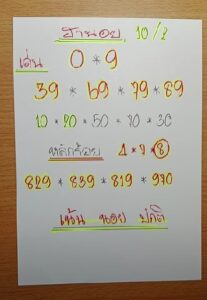 ฮานอย, 10/2
เด่น 0 * 9
39 * 69 * 79 * 89
10 * 20 * 50 * 70 * 30
หลักร้อย 1 * 7 * 8
829 * 839 * 819 * 970
เน้น นอย ปกติ